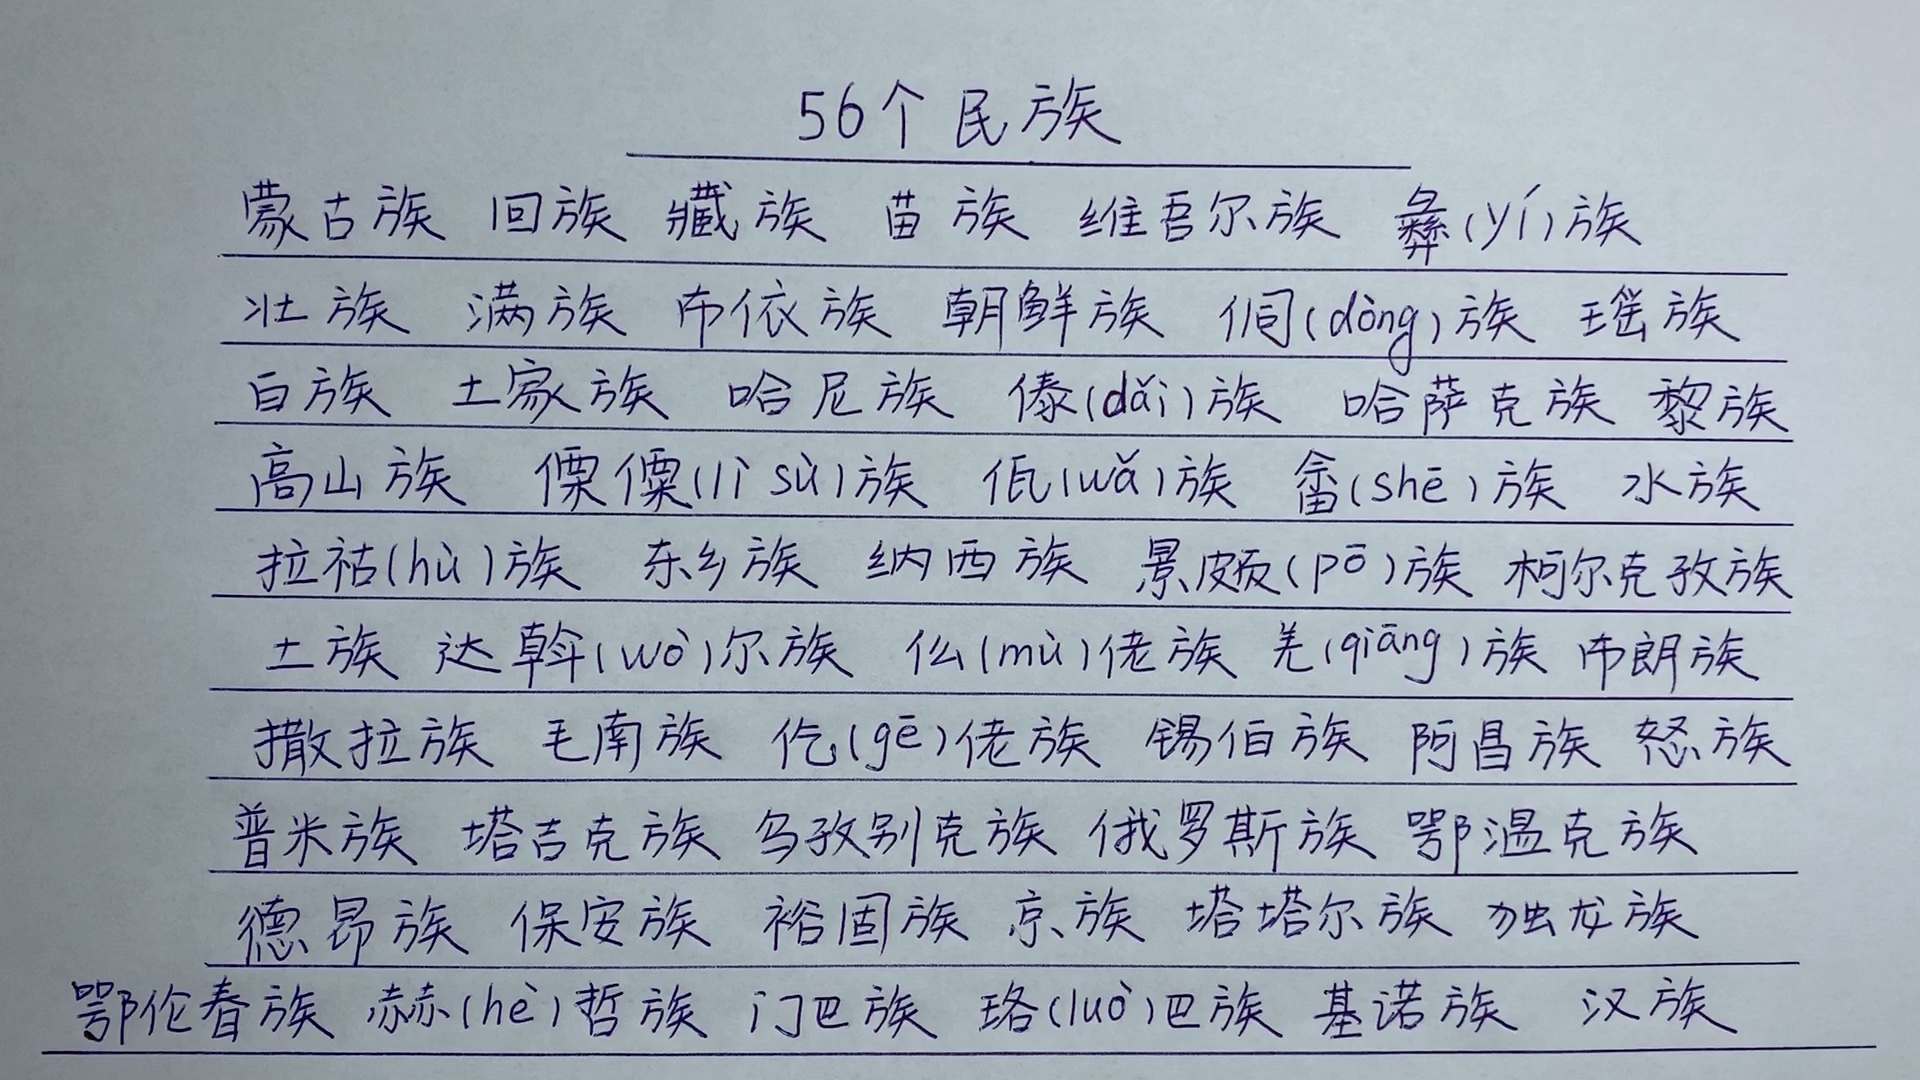 56个民族
蒙古族 回族 藏族 苗族 维吾尔族 彝(yí)族
壮族 满族 布依族 朝鲜族 侗(dòng)族 瑶族
白族 土家族 哈尼族 傣(dǎi)族 哈萨克族 黎族
高山族 傈僳(lì sù)族 佤(wǎ)族 畲(shē)族 水族
拉祜(hù)族 东乡族 纳西族 景颇(pō)族 柯尔克孜族
土族 达斡(wò)尔族 仫(mù)佬族 羌(qiāng)族 布朗族
撒拉族 毛南族 仡(gē)佬族 锡伯族 阿昌族 怒族
普米族 塔吉克族 乌孜别克族 俄罗斯族 鄂温克族
德昂族 保安族 裕固族 京族 塔塔尔族 独龙族
鄂伦春族 赫(hè)哲族 门巴族 珞(luò)巴族 基诺族 汉族